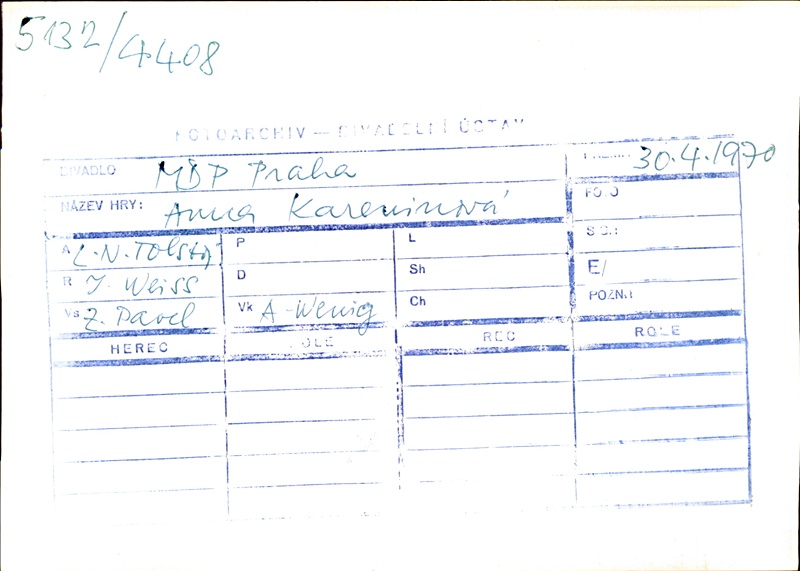 5132/4408
FOTOARCHIV — DIVADELNÍ ÚSTAV
DIVADLO MDP Praha 30.4.1970
NÁZEV HRY: Anna Kareninová FOTO
A L. N. Tolstoj P L
R J. Weiss D Sh E/
Vs Z. Pavel Vk A. Wenig Ch POZN.:
HEREC ROLE REC ROLE